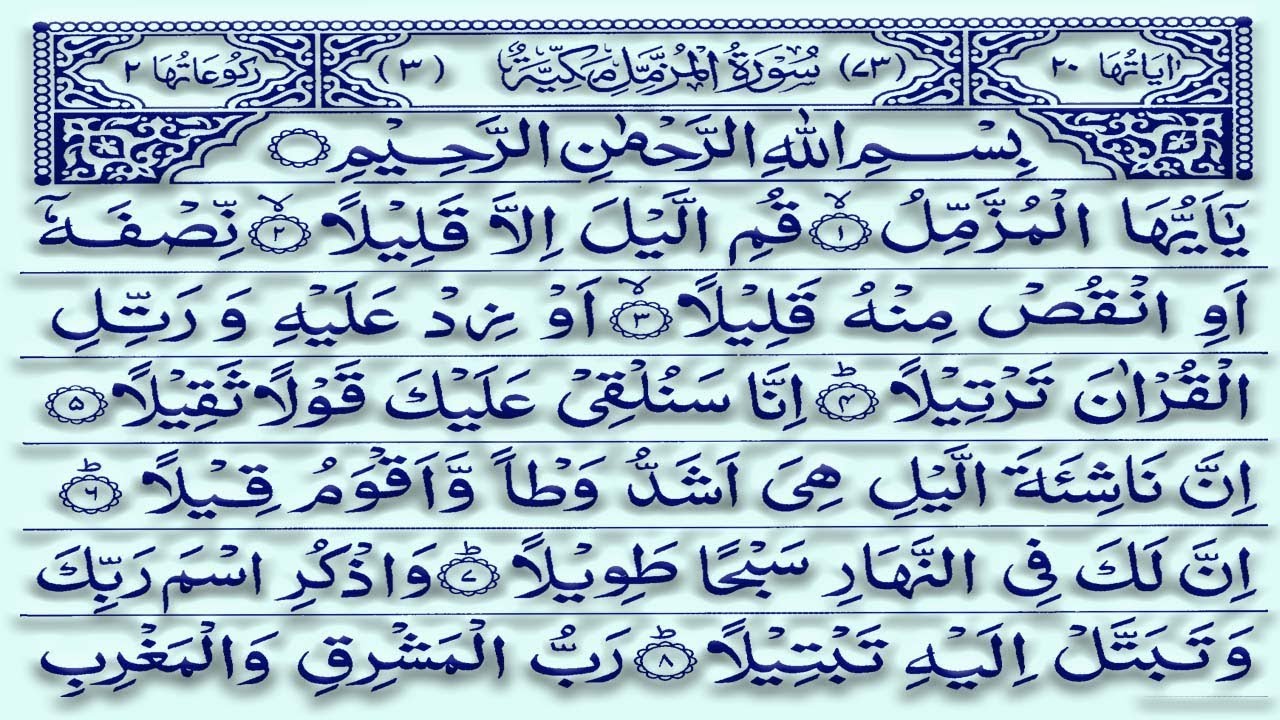 اٰيَاتُهَا ٢٠ (٧٣) سُوْرَةُ الْمُزَّمِّلِ مَكِّيَّةٌ (٣) رُكُوْعَاتُهَا ٢
بِسْمِ اللّٰهِ الرَّحْمٰنِ الرَّحِيْمِ
يٰۤاَيُّهَا الْمُزَّمِّلُ ۙ‏﴿۱﴾ قُمِ الَّيْلَ اِلَّا قَلِيْلًا ۙ‏﴿۲﴾ نِّصْفَهٗۤ
اَوِ انْقُصْ مِنْهُ قَلِيْلًا ۙ‏﴿۳﴾ اَوْ زِدْ عَلَيْهِ وَ رَتِّلِ
الْقُرْاٰنَ تَرْتِيْلًا ؕ‏﴿۴﴾ اِنَّا سَنُلْقِىْ عَلَيْكَ قَوْلًا ثَقِيْلًا ﴿۵﴾
اِنَّ نَاشِئَةَ الَّيْلِ هِىَ اَشَدُّ وَطْاً وَّاَقْوَمُ قِيْلًا ؕ‏﴿۶﴾
اِنَّ لَكَ فِى النَّهَارِ سَبْحًا طَوِيْلًا ؕ‏﴿۷﴾ وَاذْكُرِ اسْمَ رَبِّكَ
وَتَبَتَّلْ اِلَيْهِ تَبْتِيْلًا ؕ‏﴿۸﴾ رَبُّ الْمَشْرِقِ وَالْمَغْرِبِ